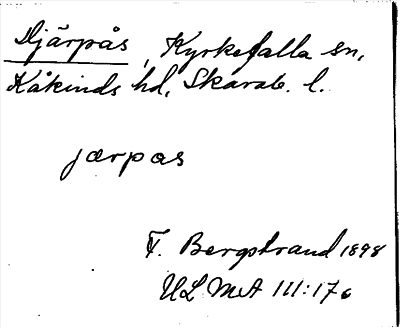 Djärpås, Kyrkefalla sn,
Kåkinds hd, Skarab. l.
jærpas
F. Bergstrand 1898
ULMA 111:176